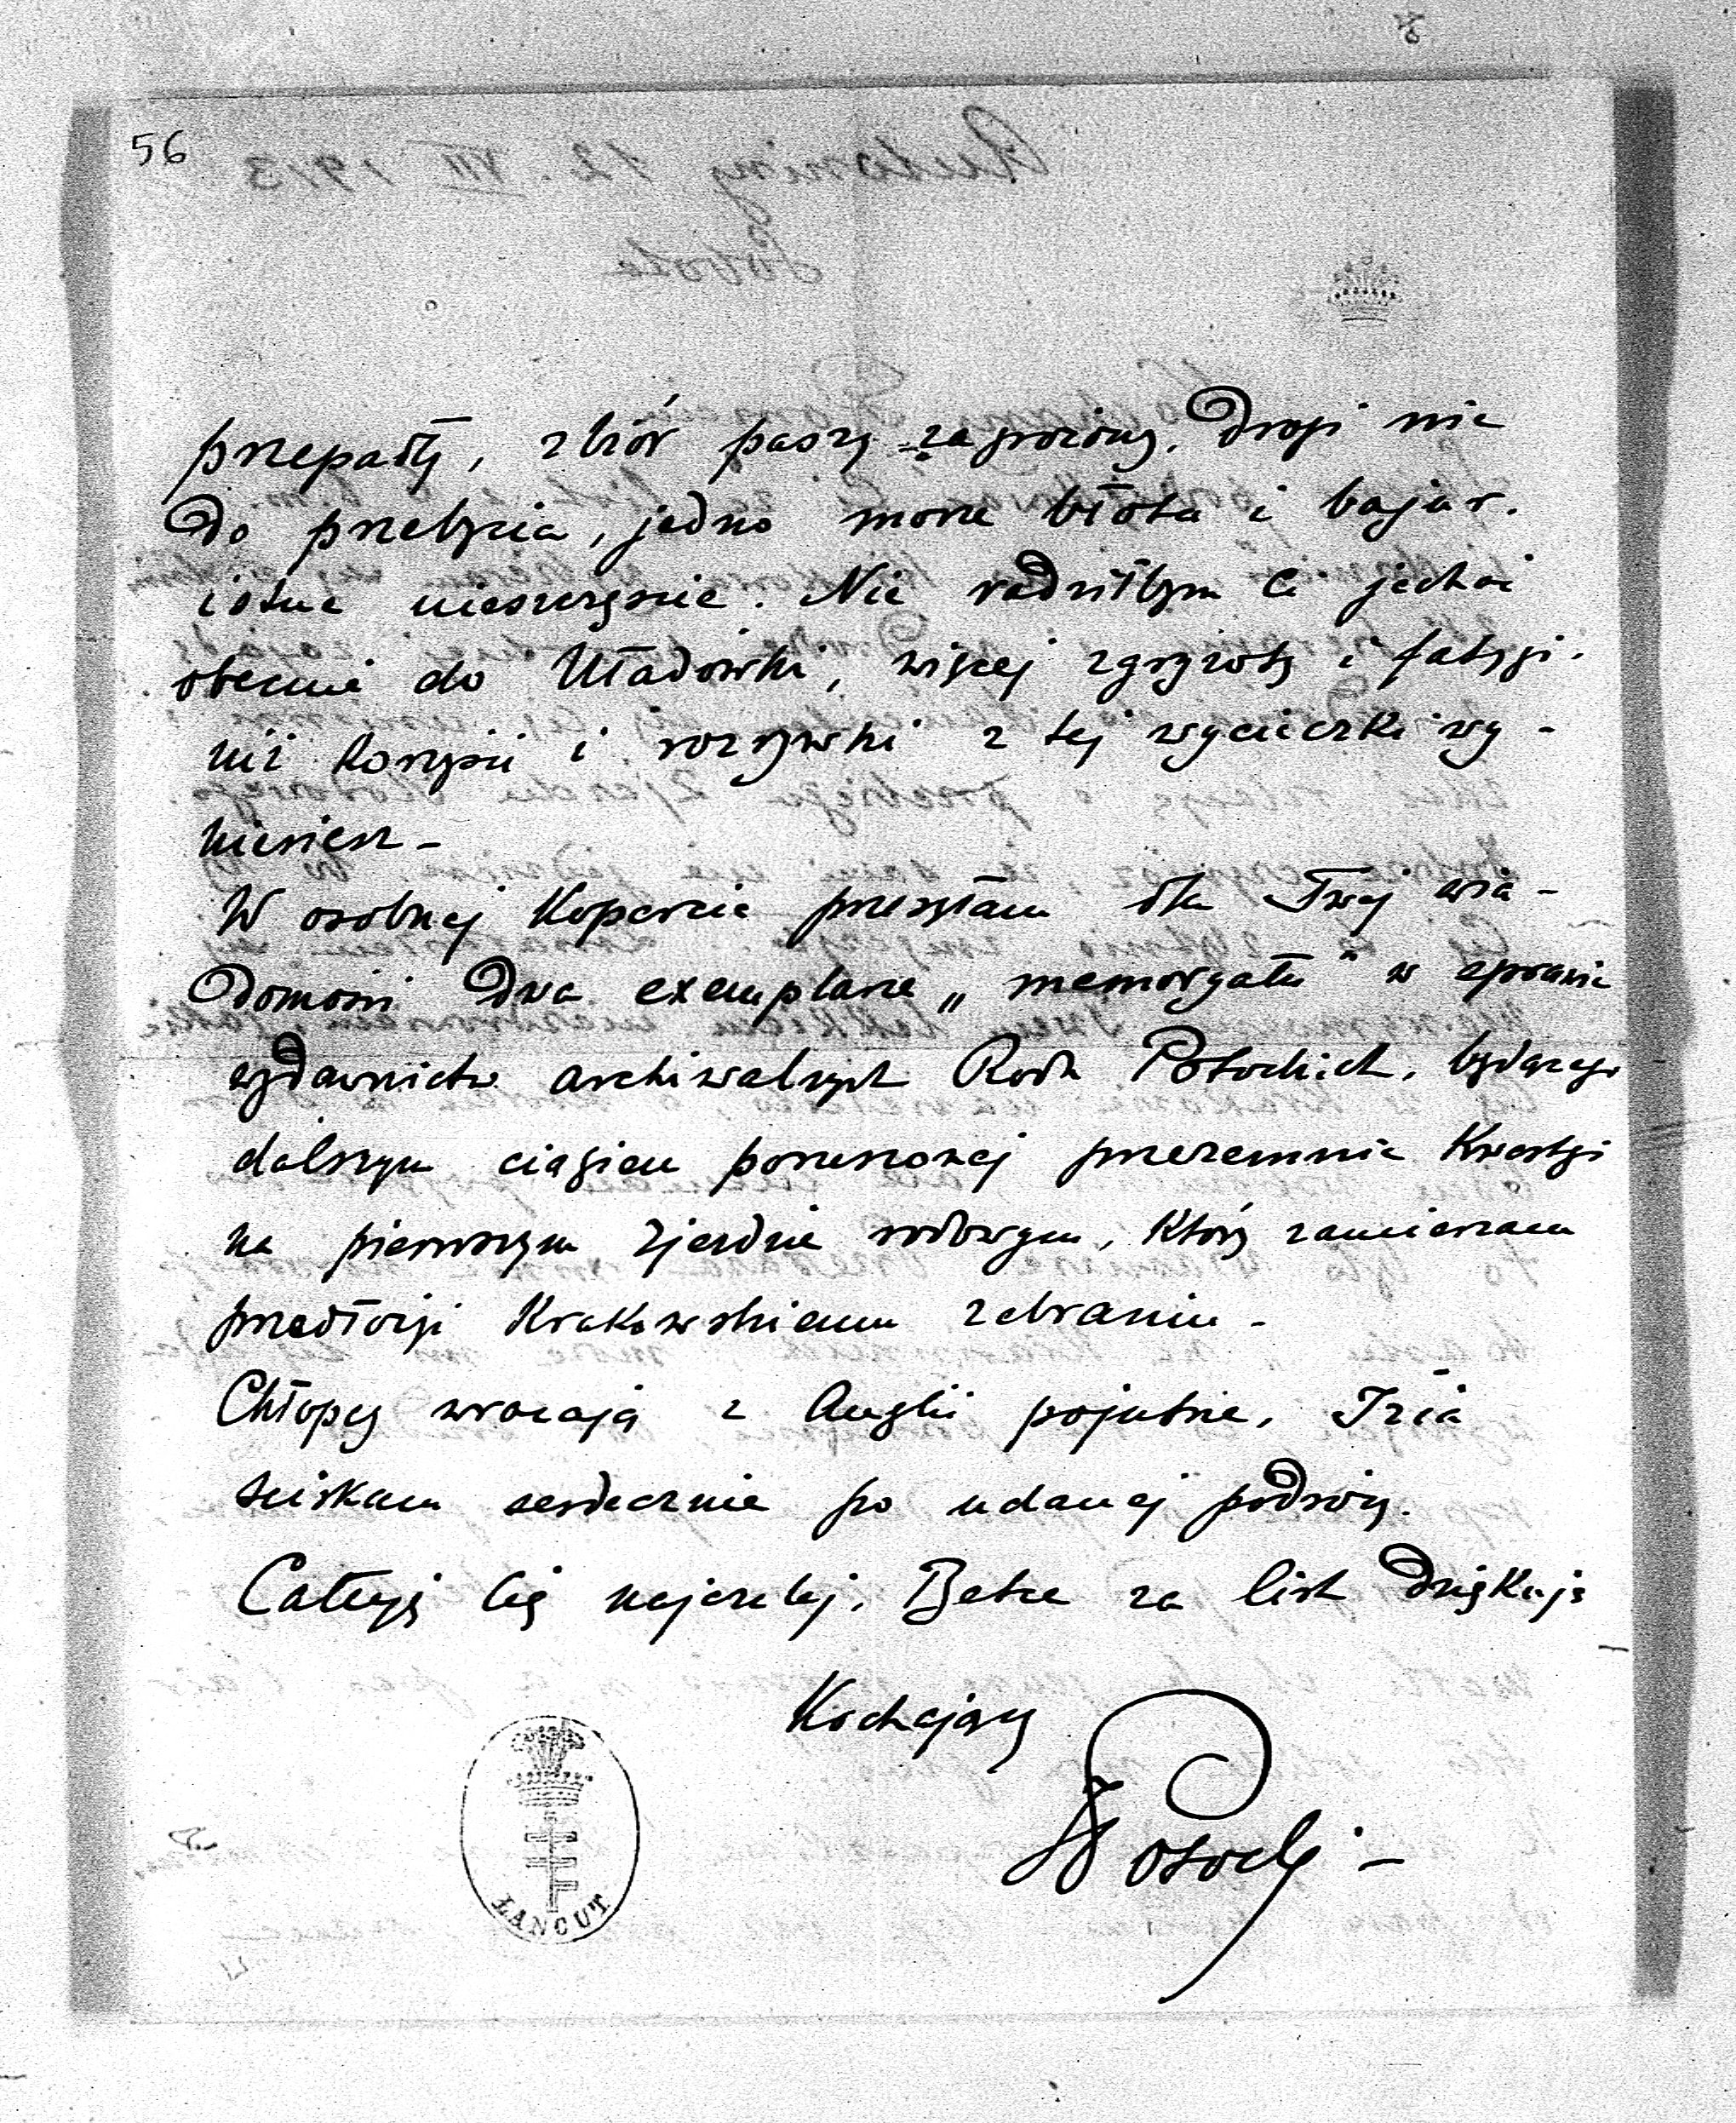 56
przepadły, zbiór paszy zagrożony. Drogi nie
do przebycia, jedno morze błota i bajur.
istne nieszczęście. Nie radziłbym Ci jechać
obecnie do Uładówki, więcej zgryzoty i fatygi.
niż korzyści i rozrywki z tej wycieczki wy-
niesiesz –
W osobnej kopercie przesyłam dla Twej wia-
domości dwa exemplarze „memoryału" w sprawie
wydawnictw archiwalnych Rodu Potockich, będącego
dalszym ciągiem poruszonej przezemnie kwestyi
na pierwszym zjeździe rodowym, który zamierzam
przedłożyć Krakowskiemu zebraniu –
Chłopcy wracają z Anglii pojutrze,
ściskam serdecznie po udanej podróży.
Całuję Cię najczulej, Betce za list dziękuję
Kochający
Potocki –
ŁANCUT